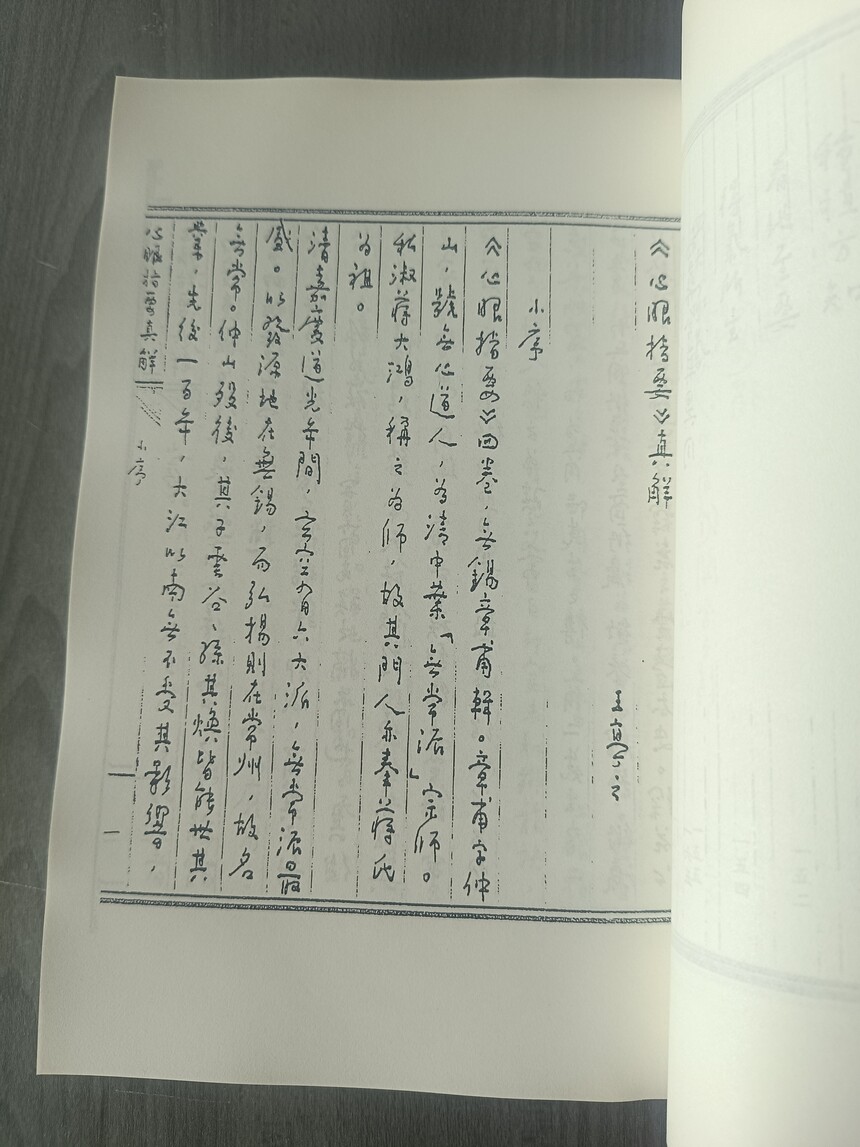 《心眼指要》真解
王亭之
小序
《心眼指要》四卷，無錫章甫輯。章甫字仲
山，號無心道人，為清中葉「無常派」宗師。
私淑蔣大鴻，稱之為師，故其門人亦奉蔣氏
為祖。
清嘉慶道光年間，玄空有六大派，無常派最
盛。以發源地在無錫，而弘揚則在常州，故名
無常。仲山歿後，其子雲谷、孫其煥皆能世其
業，先後一百年，大江以南無不受其影響，
心眼指要真解
小序
一